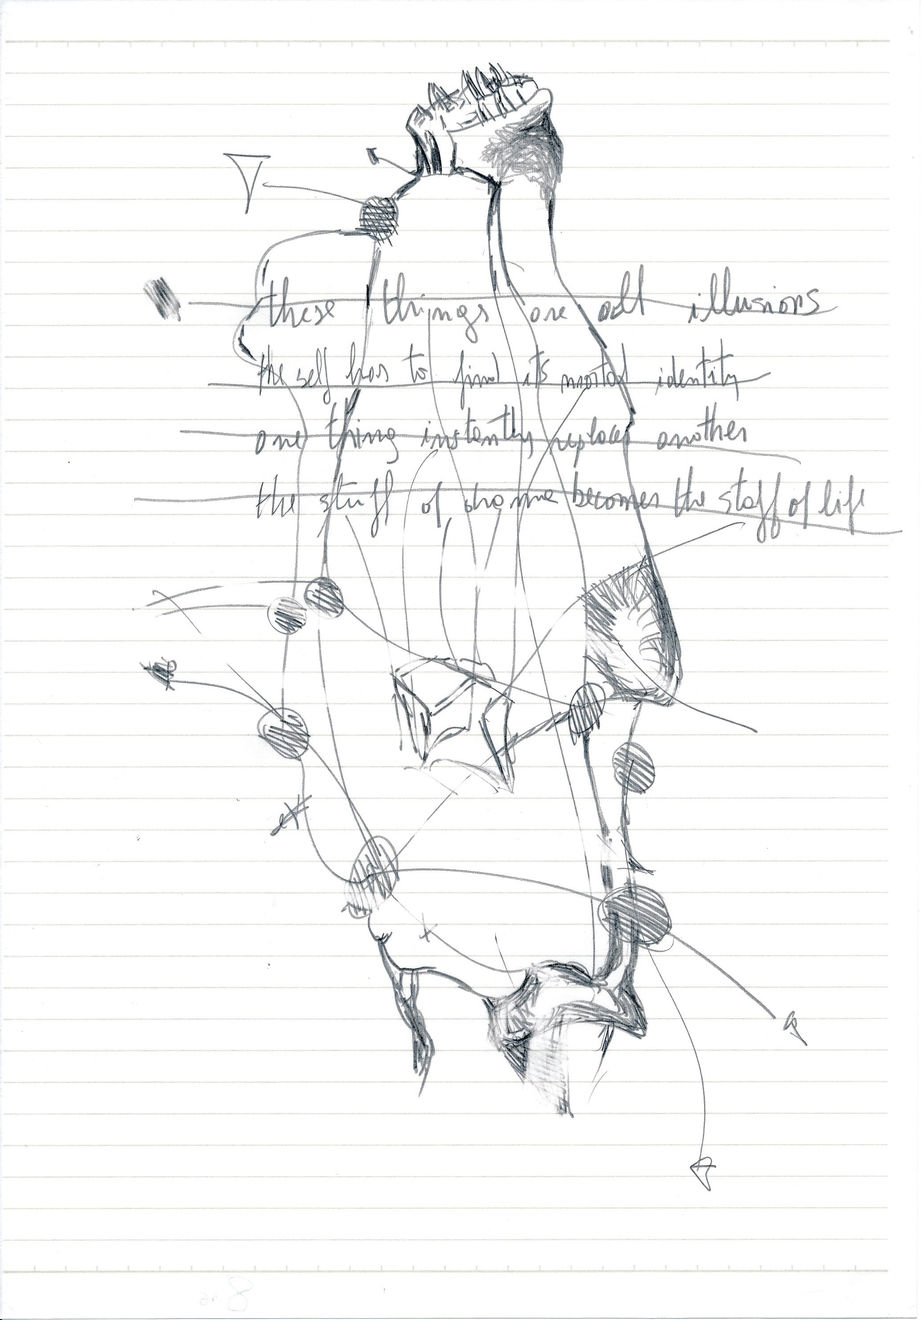 these things are all illusions
the self has to find it's mortal identity
one thing instantly replaces another
the stuff of shame becomes the stuff of life